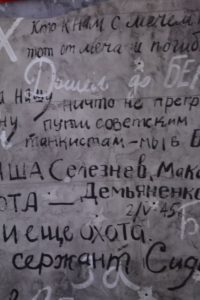 Кто к нам с мечем
тот от меча и погиб
Дошёл до БЕ
нашу ничто не прегр
пути советским
танкистам - мы в Б
ША Селезнев, Мак
ОТА — Демьяненко
2/V-45
и еще охота.
сержант Сид
За